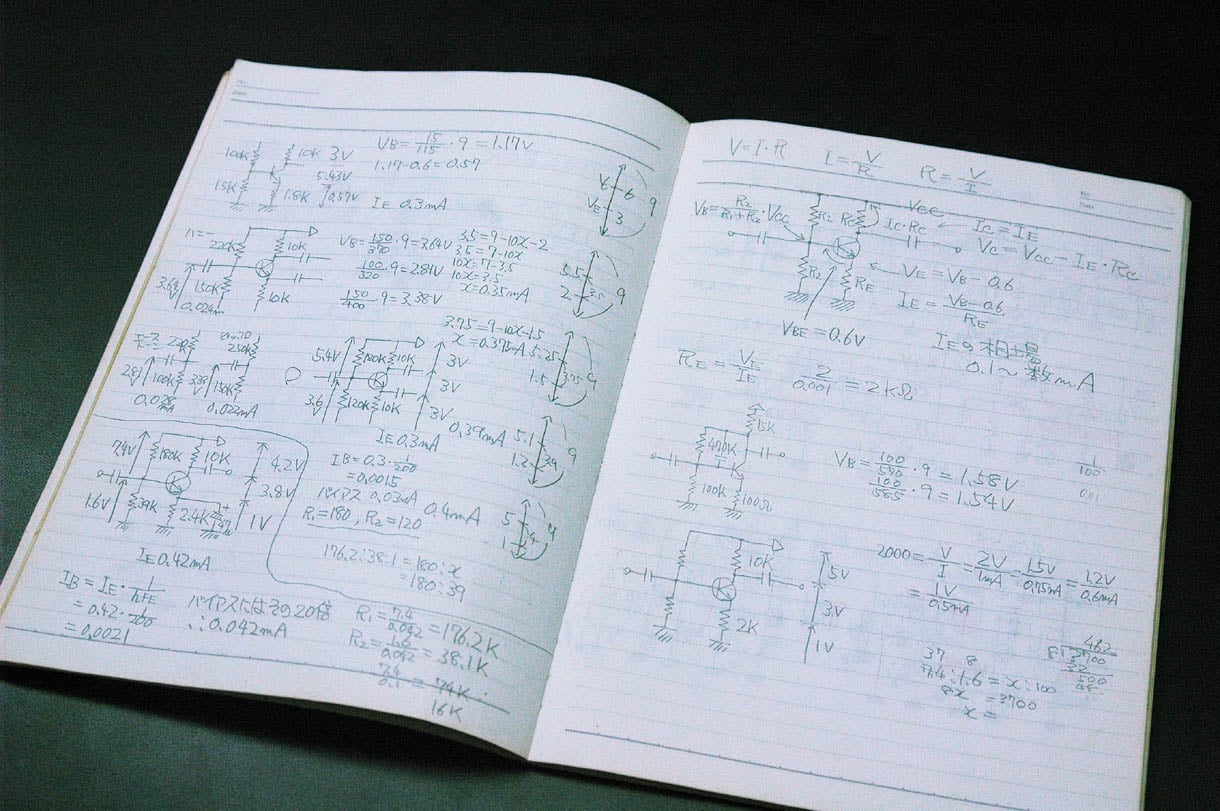 100K
10K 3V
5.43V
15K
1.8K
0.57V
VB = 15/115 · 9 = 1.17V
1.17-0.6 = 0.57
IE 0.3mA
VE
6
3
9
220K
10K
150K
10K
0.024m
VB = 150/370 · 9 = 3.64V
100/320 · 9 = 2.81V
150/400 · 9 = 3.38V
3.5 = 9-10x-2
3.5 = 7-10x
10x = 7-3.5
10x = 3.5
x = 0.35mA
5.5
3.5
2
9
220K
250K
2.81
100K
3.38
150K
0.028mA
0.022mA
5.4V
180K
10K
3V
3V
3.6V
120K
10K
3V
IE 0.3mA
3.75 = 9-10x-1.5
x = 0.375mA
5.25
3.75
1.5
9
0.39mA
5.1
3.9
1.2
9
0.4mA
5
4
1
7.4V
180K
10K
4.2V
3.8V
1.6V
39K
2.4K
1V
IE 0.42mA
IB = 0.3 · 1/200
= 0.0015
バイアス 0.03mA
R1 = 180, R2 = 120
176.2 : 38.1 = 180 : x
= 180 : 39
IB = IE · 1/hFE
= 0.42 · 1/200
= 0.0021
バイアスにはその20倍
∴ 0.042mA
R1 = 7.4/0.042 = 176.2K
R2 = 1.6/0.042 = 38.1K
7.4/0.1 = 74K
16K
No.
Date
V = I · R I = V/R R = V/I
VB = R2/R1+R2 · Vcc
Vcc
R2
Rc
Ic · Rc
Ic ≒ IE
Vc = Vcc - IE · Rc
R2
RE
VE = VB - 0.6
IE = VB-0.6/RE
VBE = 0.6V
IEの相場
0.1~数mA
RE = VE/IE
2/0.001 = 2kΩ
15K
470K
100K
100Ω
VB = 100/570 · 9 = 1.58V
100/585 · 9 = 1.54V
1/100
0.01
10K
5V
3V
2K
1V
2000 = V/I = 2V/1mA = 1.5V/0.75mA = 1.2V/0.6mA
= 1V/0.5mA
37 8
7.4 : 1.6 = x : 100
8x = 3700
x =
462
8 3700
32
500
48